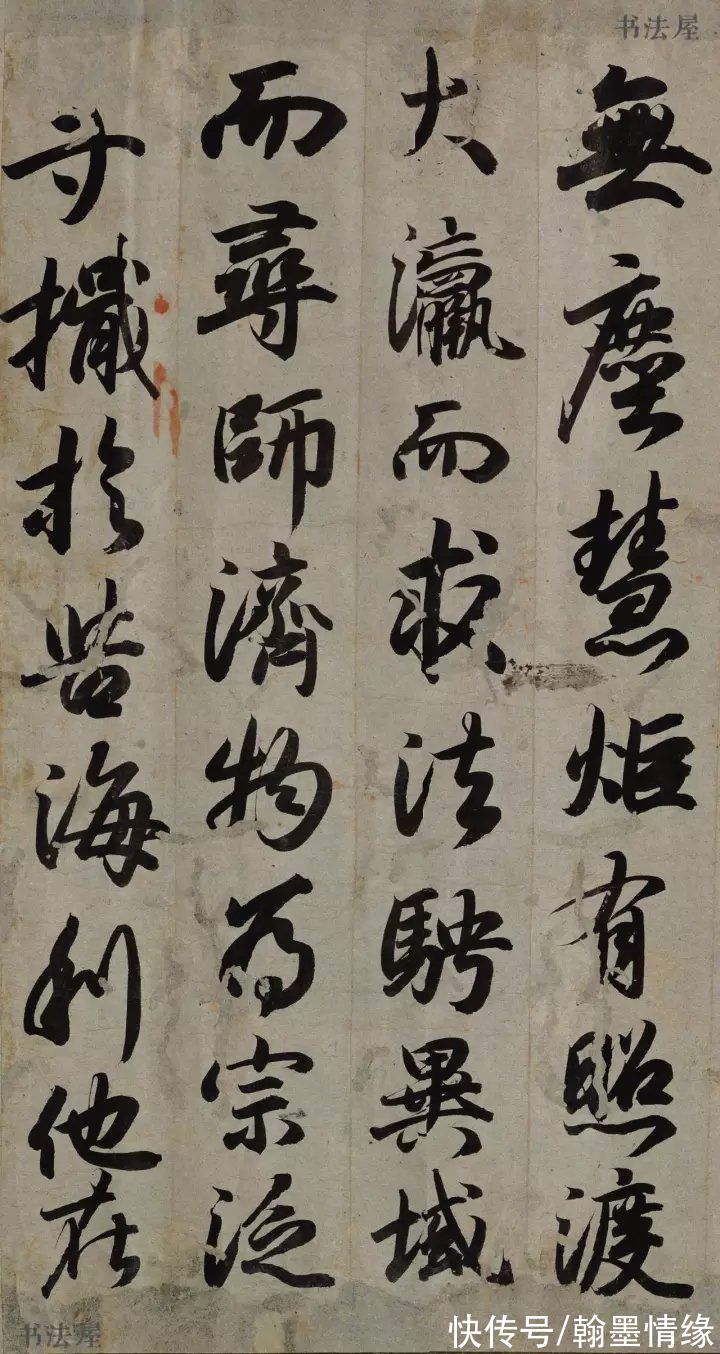 书法屋
無塵慧炬有照渡
大瀛而求法騁異域
而尋師濟物為宗泛
寸檝於苦海利他在
书法屋
快传号/翰墨情缘